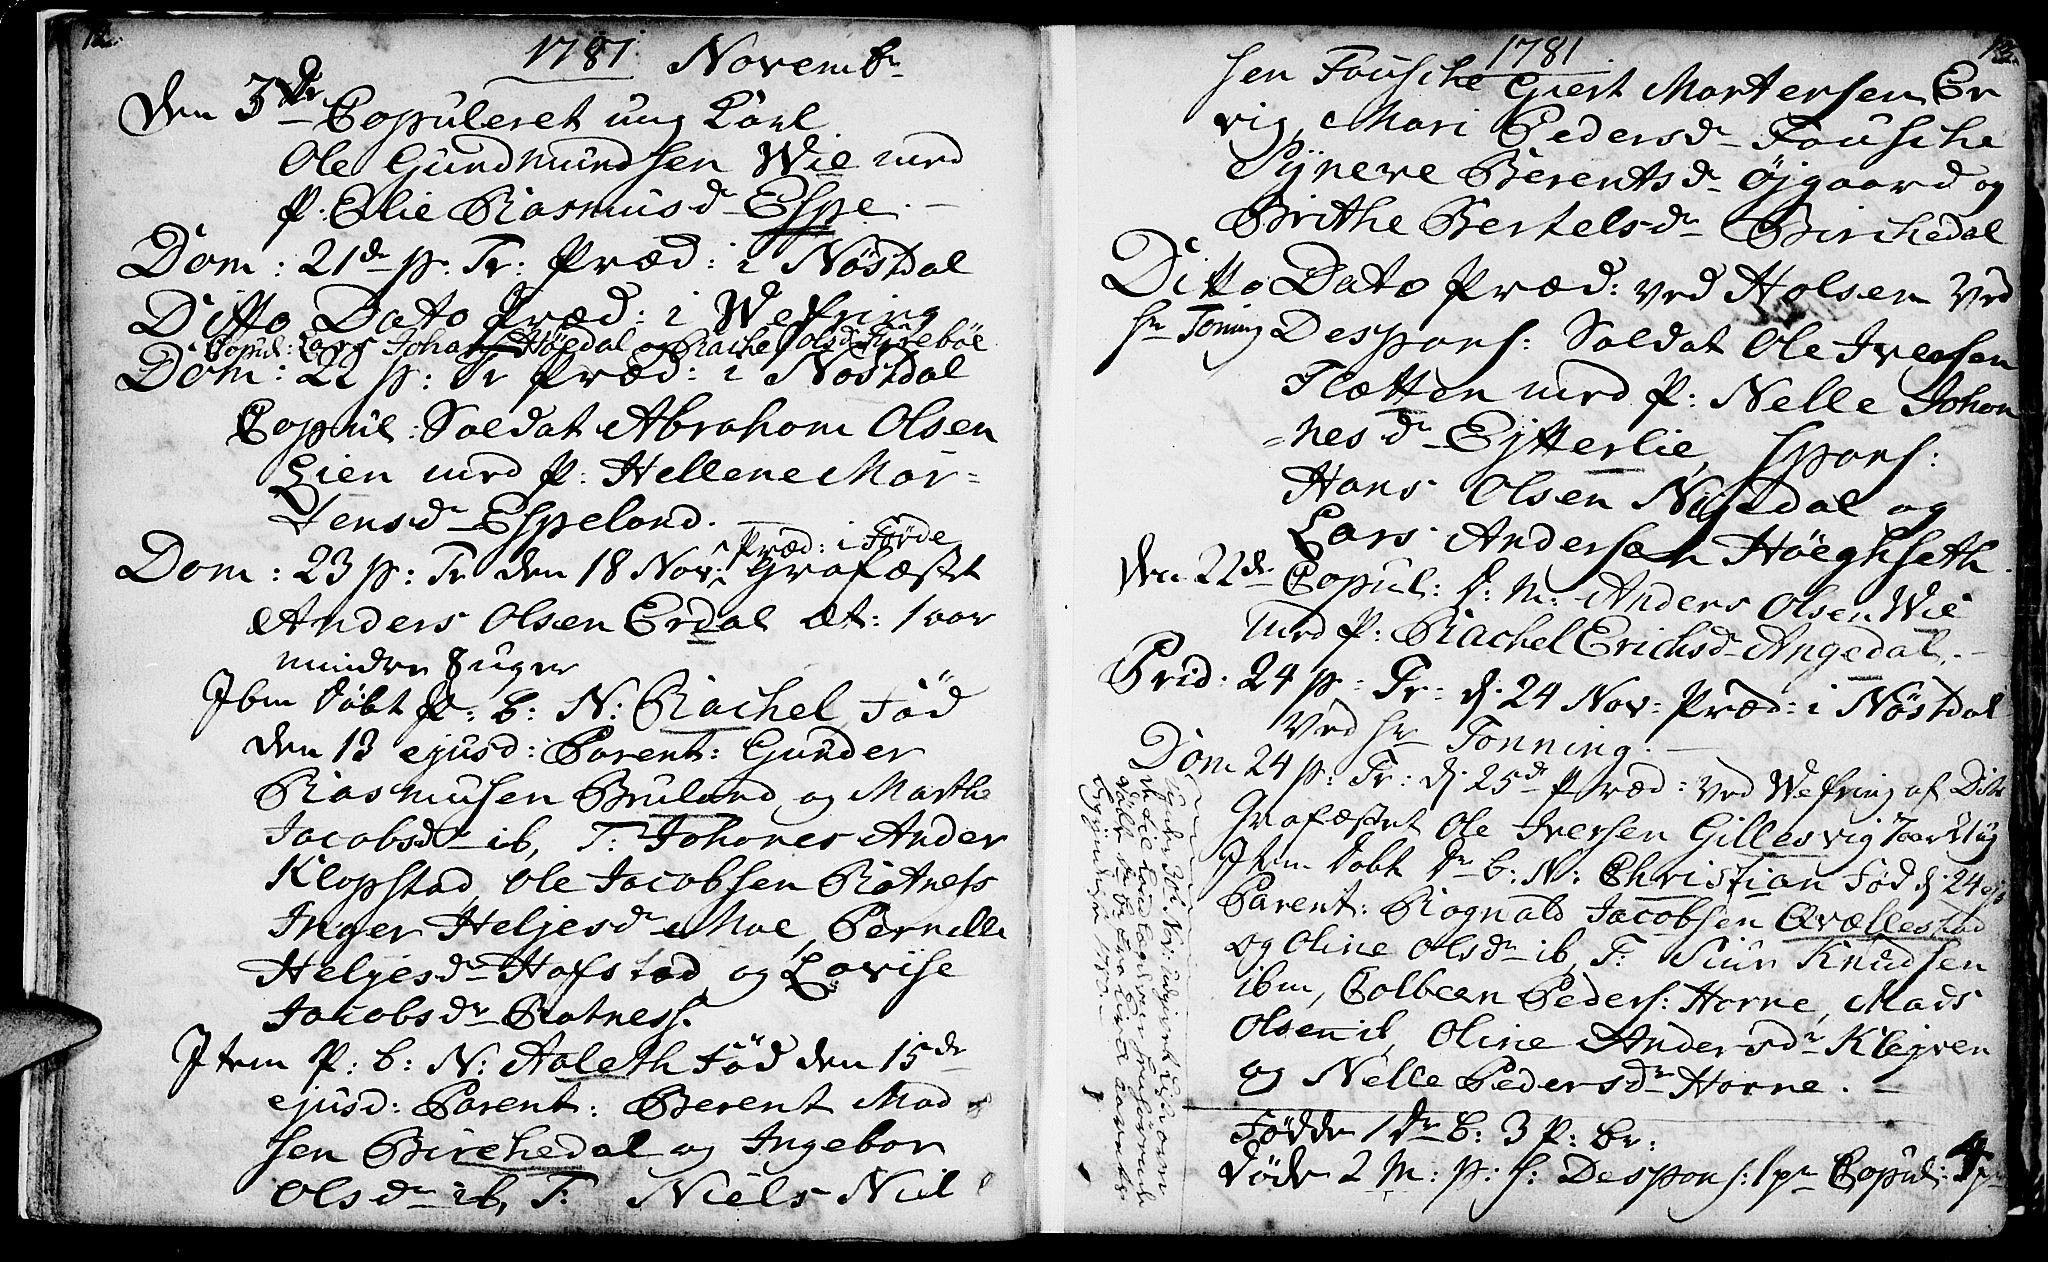 12.
1781. Novembr
Den 3die Copuleret ung Karl
Ole Gundmundsen Wie med
P. Elie Rasmusdr Espe. —
Dom: 21de p. Tr: Præd: i Nøstdal
Ditto Dato Præd: i Wefring
Copul: Lars Johans: Høedal og Rachel Olsdr Fürebøe
Dom: 22 p: Tr Præd: i Nøstdal
Copul: Soldat Abraham Olsen
Lien med P: Hellene Mor=
tensdr Espeland. —
Præd: i Førde
Dom: 23 p: Tr den 18 Nov: Grafæstet
Anders Olsen Erdal æt: 1 aar
mindre 8 uger
Ibm døbt P: b: N: Rachel, Fød
den 13 ejusd: Parent: Gunder
Rasmusen Bruland og Marthe
Jacobsdr ib, T: Johanes Ander
Klopstad, Ole Jacobsen Ratnefs
Inger Heljesdr Moe, Pernille
Heljesdr Hafstad og Lovise
Jacobsdr Ratness.
Item P: b: N: Aaleth Fød den 15de
ejusd: Parent: Berent Mad
sen Birchedal og Ingebor
Olsdr ib, T: Niels Niel
1781.
sen Fousche Giert Mortensen Er
vig, Mari Pedersdr Fousche
Synneve Berentsdr Øjgaard og
Brithe Bertelsdr Birchedal
Ditto Dato Præd: ved Holsen ved
Hr Toning Despons: Soldat Ole Iversen
Flætten med P: Nelle Johan
=nesdr Eytterlie, spons:
Hans Olsen Nysdal og
Lars Andersen Høeghseth.
den 22de Copul: D: M: Anders Olsen Wie
med P: Rachel Erichsdr Angedal. —
Prid. 24 p: Tr: d: 24 Nov: Præd: i Nøstdal
ved Hr Tonning. —
Dom 24 p: Tr: d: 25de Præd: ved Wefring af Dito
Grafæstet Ole Iversen Gillesvig 7 aar 21 ug
Item døbt Dr b: N: Christian Fød d: 24 ejs
Parent: Rognald Jacobsen Qvællestad
og Oline Olsdr ib, T: Siur Knudsen
ibm, Colbeen Peders: Horne, Mads
Olsen ib, Oline Andersdr Klejven
og Nelle Pedersdr Horne. —
Fødde 1 Dr b: 3 P: br:
døde 2 M: p: s: Despons: 1 pr Copul: 4 pr